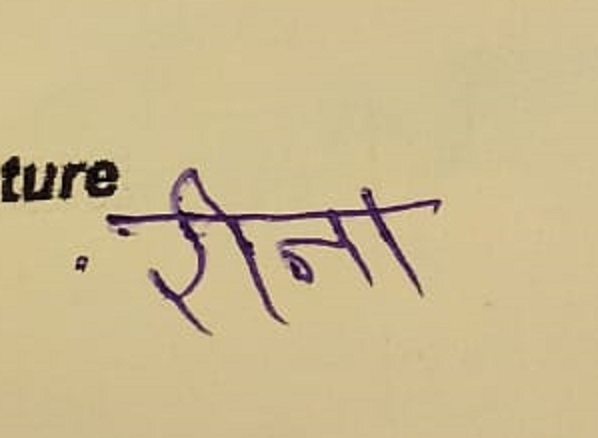 ture
रीना